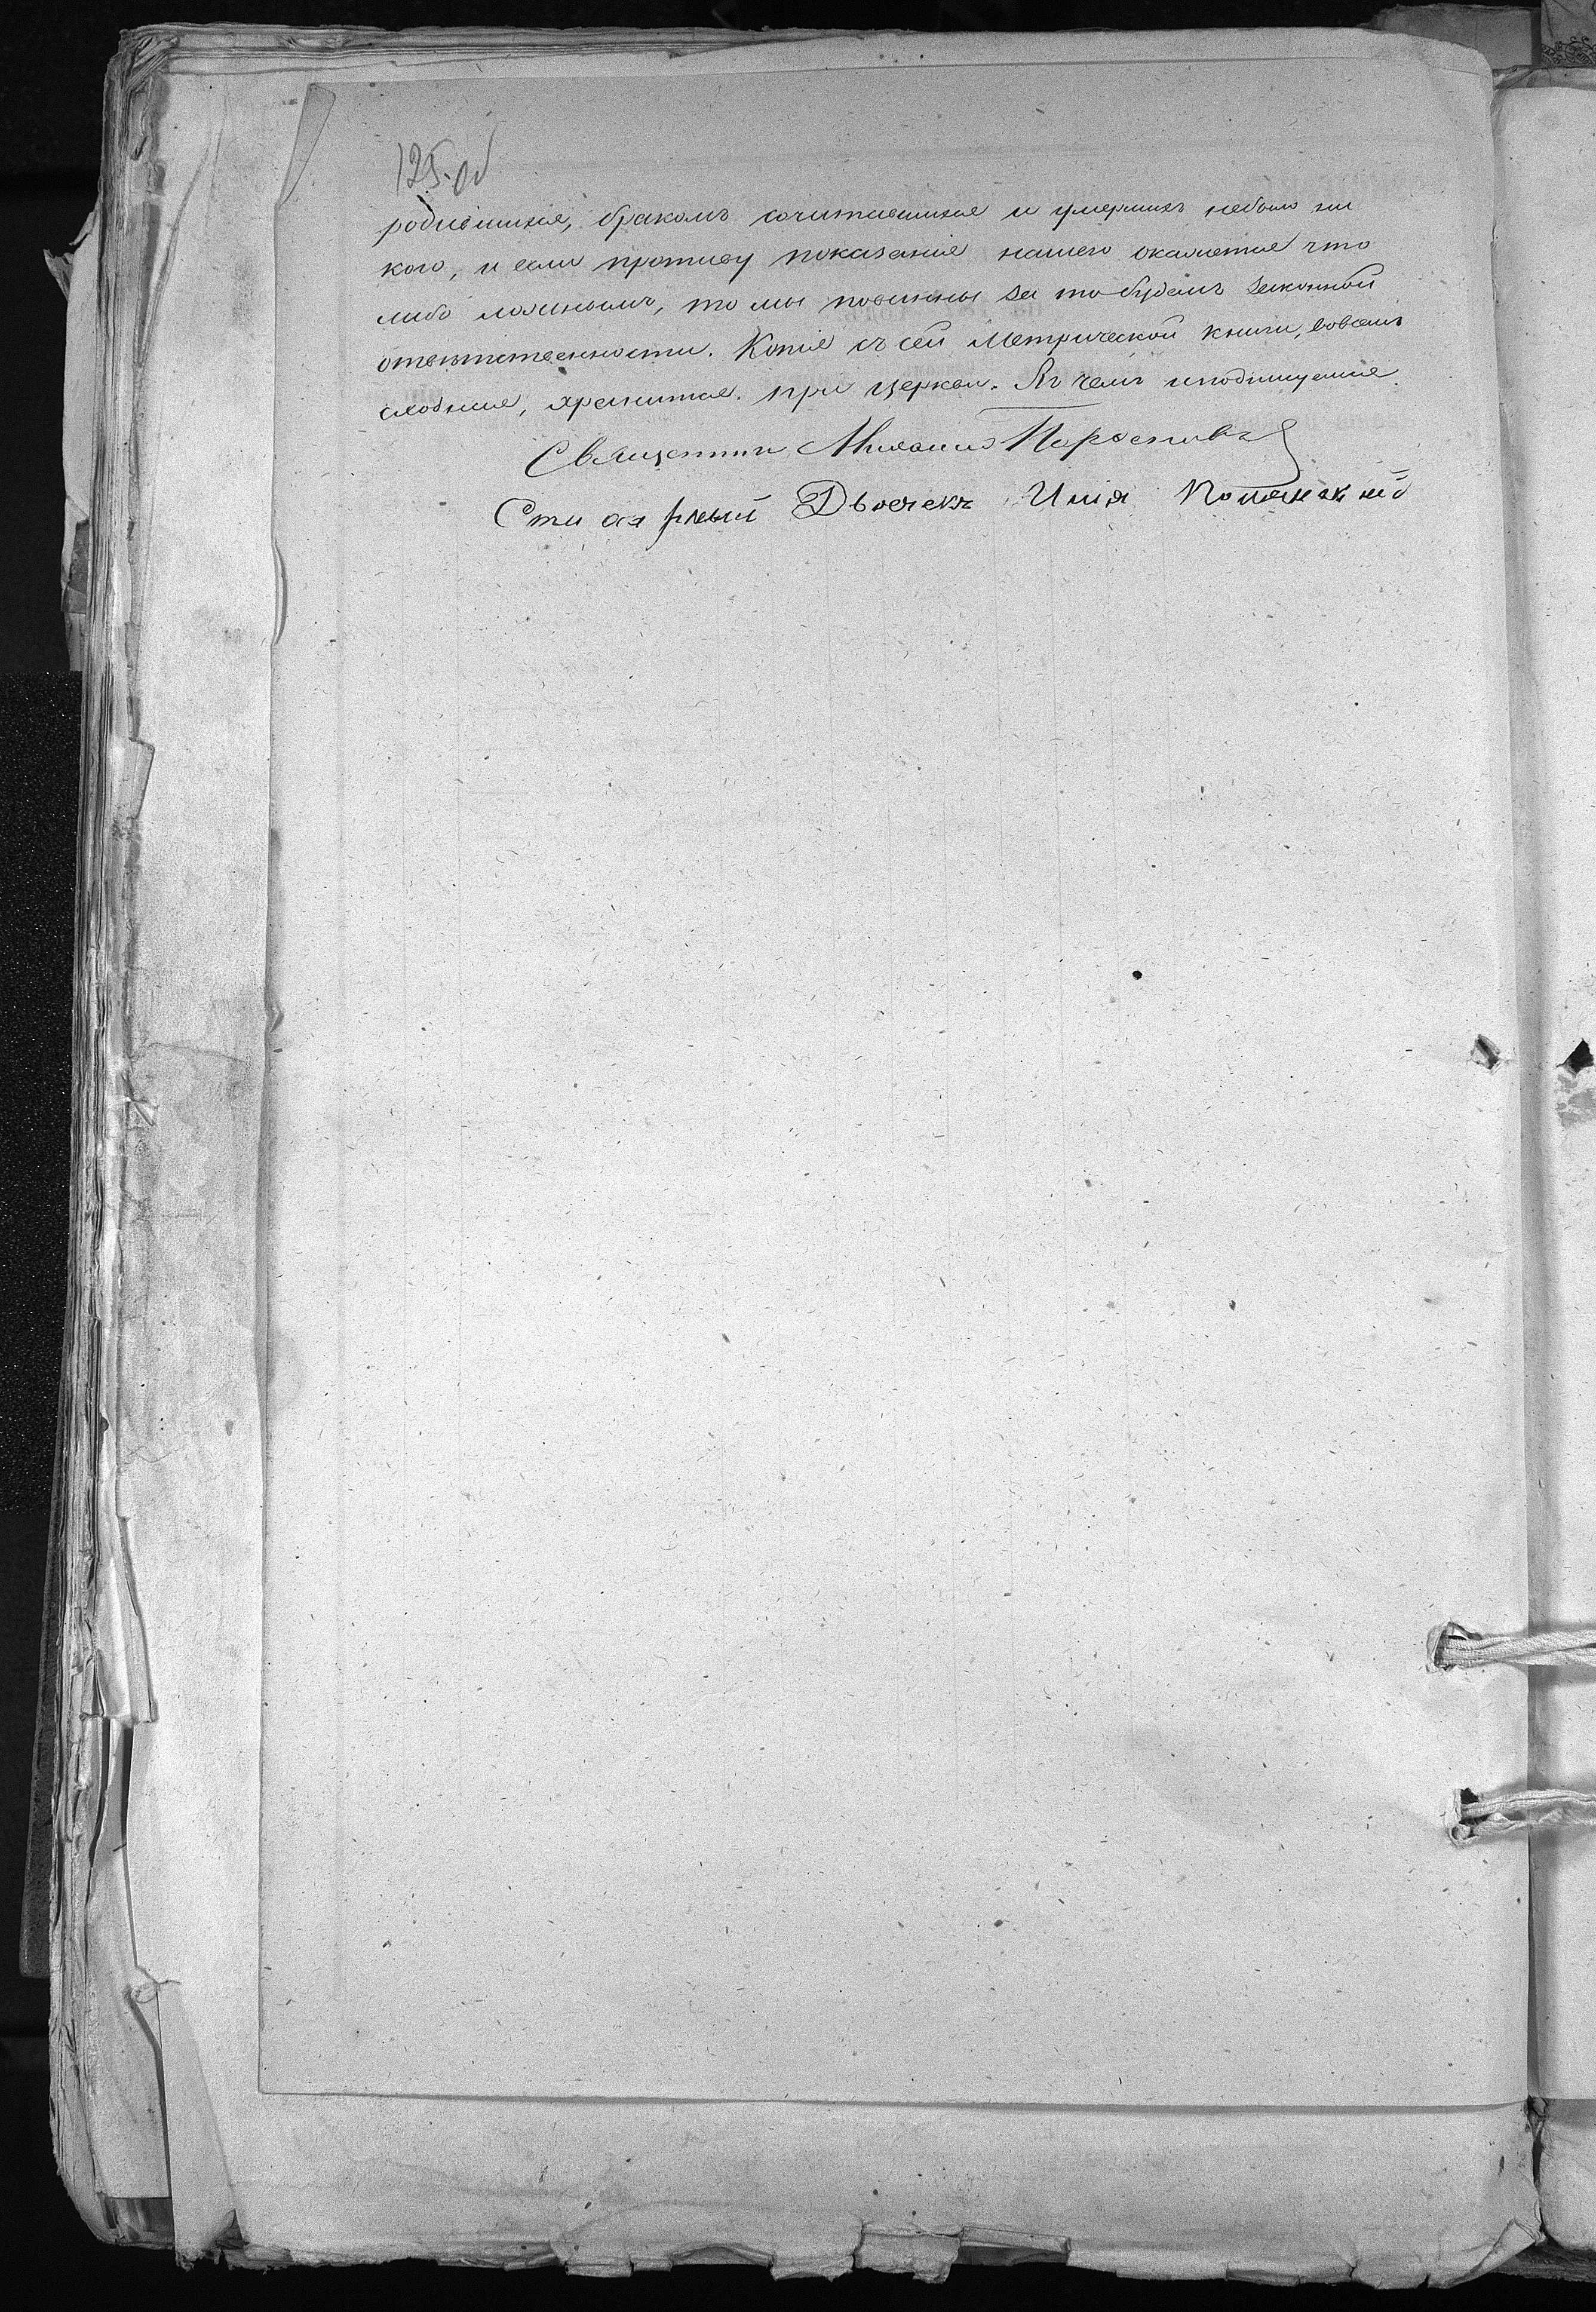 125.об
родившихся, бракомъ сочитавшихся и умершихъ небыло ни
кого, и если противу показанія нашего окажется что
либо ложнымъ, то мы повинны за то будемъ законной
отвѣтственности. Копія съ сей Метрической книги, вовсемъ
сходная, хранится при церкви. Въ чемъ иподпишуемся
Священник Михаилъ
Стихарный Дьячекъ Илія